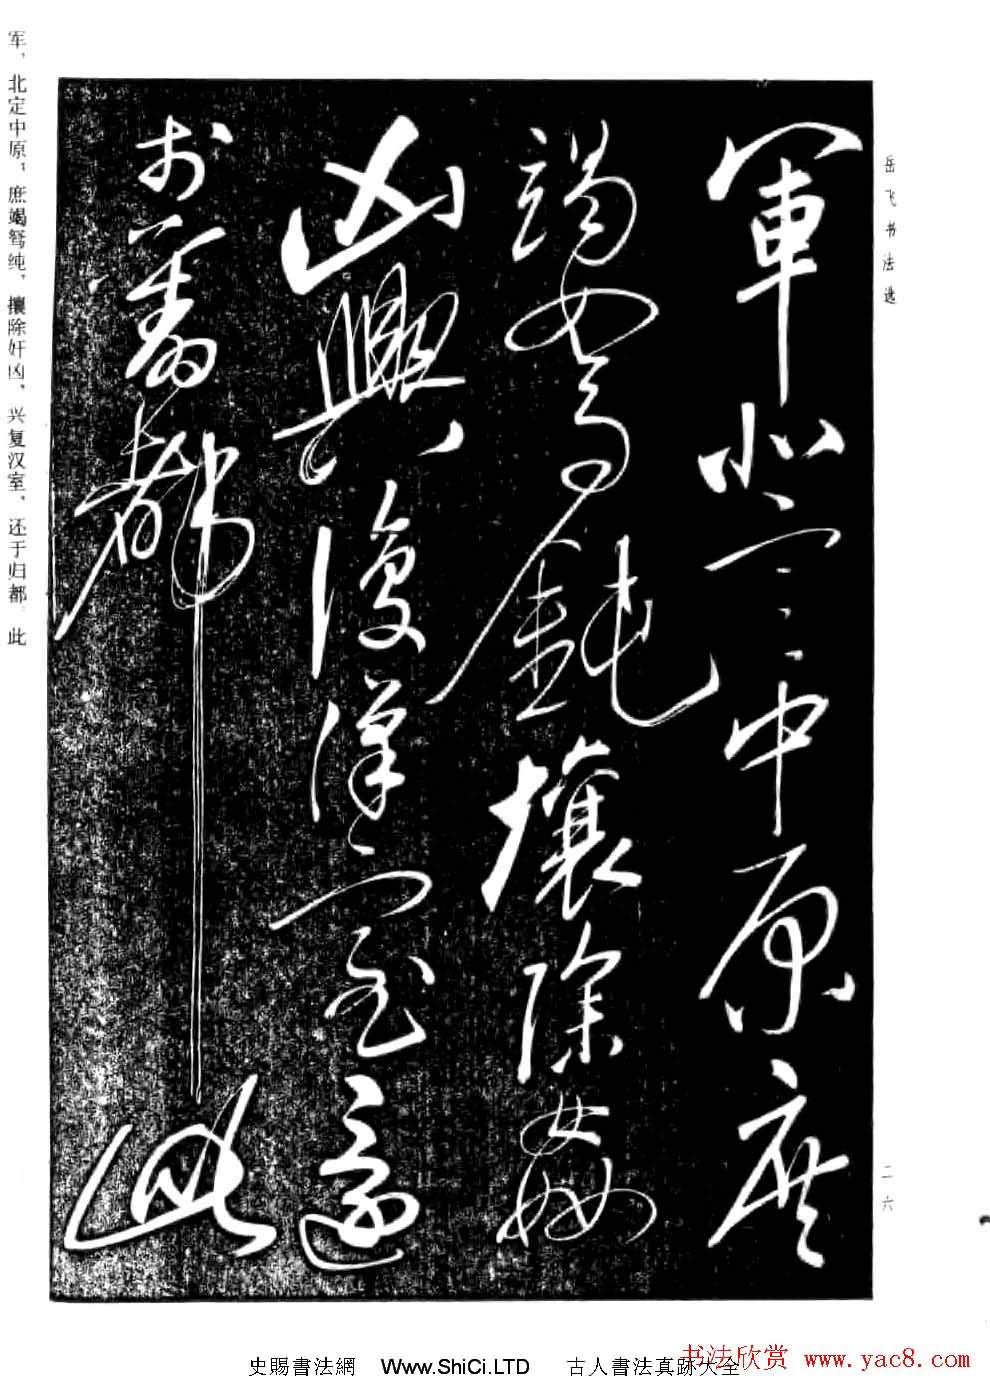 岳飞书法选
軍北定中原庶
竭駑鈍攘除姦
凶興復漢室還
於舊都此
二六
军，北定中原，庶竭驽纯，攘除奸凶、兴复汉室，还于归都。此
书法欣赏 www.yac8.com
史賜書法網 Www.ShiCi.LTD 古人書法真跡大全